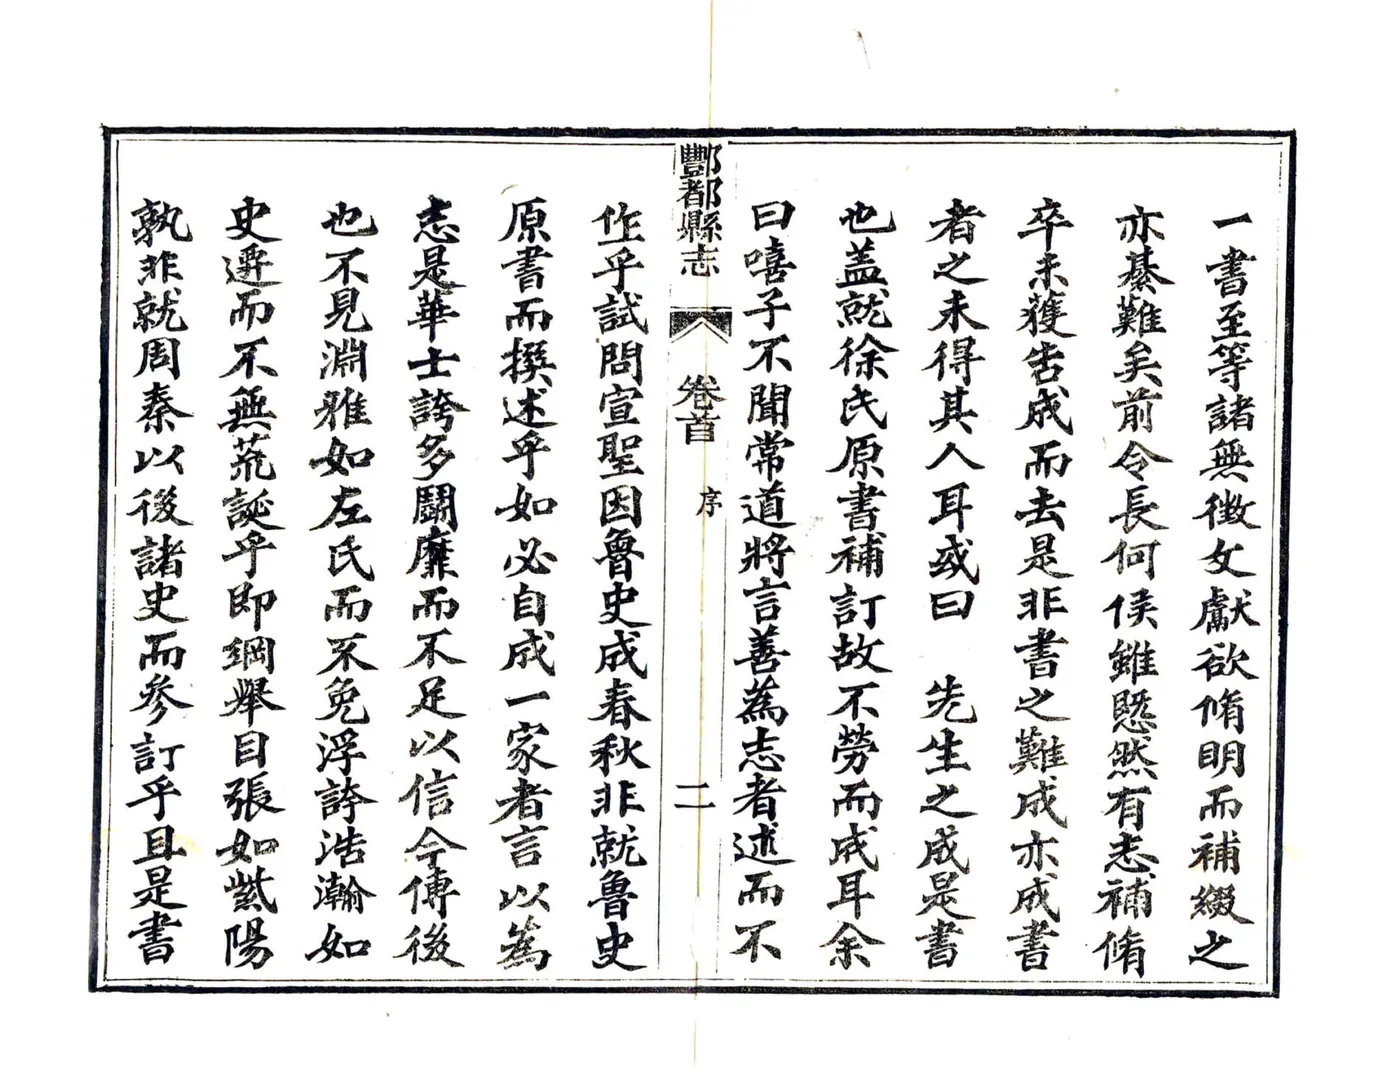 一書至等諸無徵文獻欲脩明而補綴之
亦綦難矣前令長何侯雖慨然有志補脩
卒未獲告成而去是非書之難成亦成書
者之未得其人耳或曰　先生之成是書
也蓋就徐氏原書補訂故不勞而成耳余
曰嘻子不聞常道將言善為志者述而不
酆都縣志
卷首
序
二
作乎試問宣聖因魯史成春秋非就魯史
原書而撰述乎如必自成一家者言以為
志是華士誇多鬬靡而不足以信今傳後
也不見淵雅如左氏而不免浮誇浩瀚如
史遷而不無荒誕乎即綱舉目張如紫陽
孰非就周秦以後諸史而參訂乎且是書